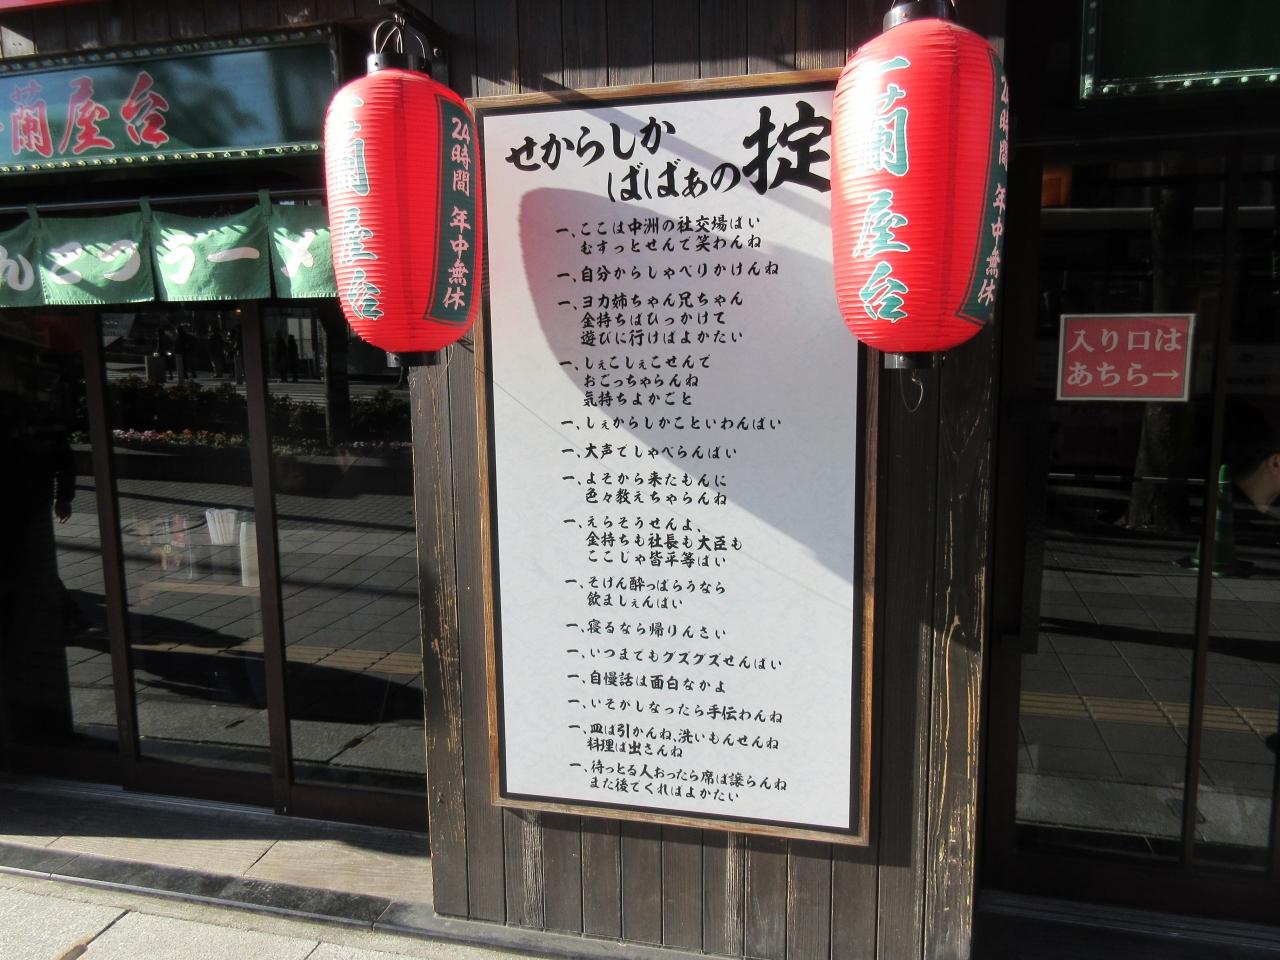 蘭屋台
んこつラーメ
一蘭屋台
24時間 年中無休
せからしか
ばばぁの掟
一、ここは中洲の社交場ばい
むすっとせんで笑わんね
一、自分からしゃべりかけんね
一、ヨカ姉ちゃん兄ちゃん
金持ちばひっかけて
遊びに行けばよかたい
一、しぇこしぇこせんで
おごっちゃらんね
気持ちよかごと
一、しぇからしかこといわんばい
一、大声でしゃべらんばい
一、よそから来たもんに
色々教えちゃらんね
一、えらそうせんよ、
金持ちも社長も大臣も
ここじゃ皆平等ばい
一、そげん酔っぱらうなら
飲ましぇんばい
一、寝るなら帰りんさい
一、いつまでもグズグズせんばい
一、自慢話は面白なかよ
一、いそがしなったら手伝わんね
一、皿は引かんね、洗いもんせんね
料理は出さんね
一、待っとる人おったら席ば譲らんね
また後でくればよかたい
一蘭屋台
24時間 年中無休
入り口は
あちら→